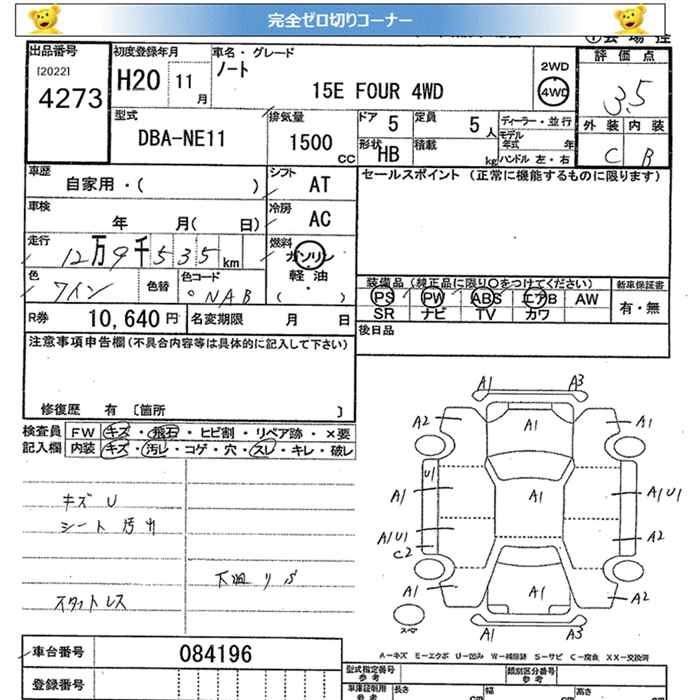 完全ゼロ切りコーナー
出品番号
[2022]
4273
初度登録年月
H20 11月
車名・グレード
ノート
15E FOUR 4WD
2WD
4WD
評価点
3.5
外装 内装
C B
型式
DBA-NE11
排気量
1500 CC
ドア 5
定員 5人
形状 HB
積載 kg
ディーラー・並行
モデル年式 年
ハンドル 左・右
車歴
自家用・( )
シフト AT
車検
年 月( 日)
冷房 AC
走行
12万9千535km
燃料
ガソリン
軽・油
( )
色
ワイン
色替
色コード
NAB
R券 10,640円
名変期限 月 日
セールスポイント (正常に機能するものに限ります)
装備品 (純正品に限り○をつけてください)
PS PW ABS エアB AW
SR ナビ TV カワ
新車保証書
有・無
後日品
注意事項申告欄(不具合内容等は具体的に記入して下さい)
修復歴 有 〔箇所 〕
検査員記入欄
FW キズ・飛石・ヒビ割・リペア跡・×要
内装 キズ・汚レ・コゲ・穴・スレ・キレ・破レ
キズ U
シート 汚れ
下廻りサビ
スタットレス
A1 A3
A2 A1 A1
U1
A1 A1 A1U1
A1U1
C2
A2
A2 A1 A2
スペア
A1 A3
A-キズ E-エクボ U-凹み W-補修跡 S-サビ C-腐食 XX-交換済
車台番号
084196
登録番号
型式指定番号
参考
類別区分番号
参考
車庫証明用
参考
長さ
cm
幅
cm
高さ
cm